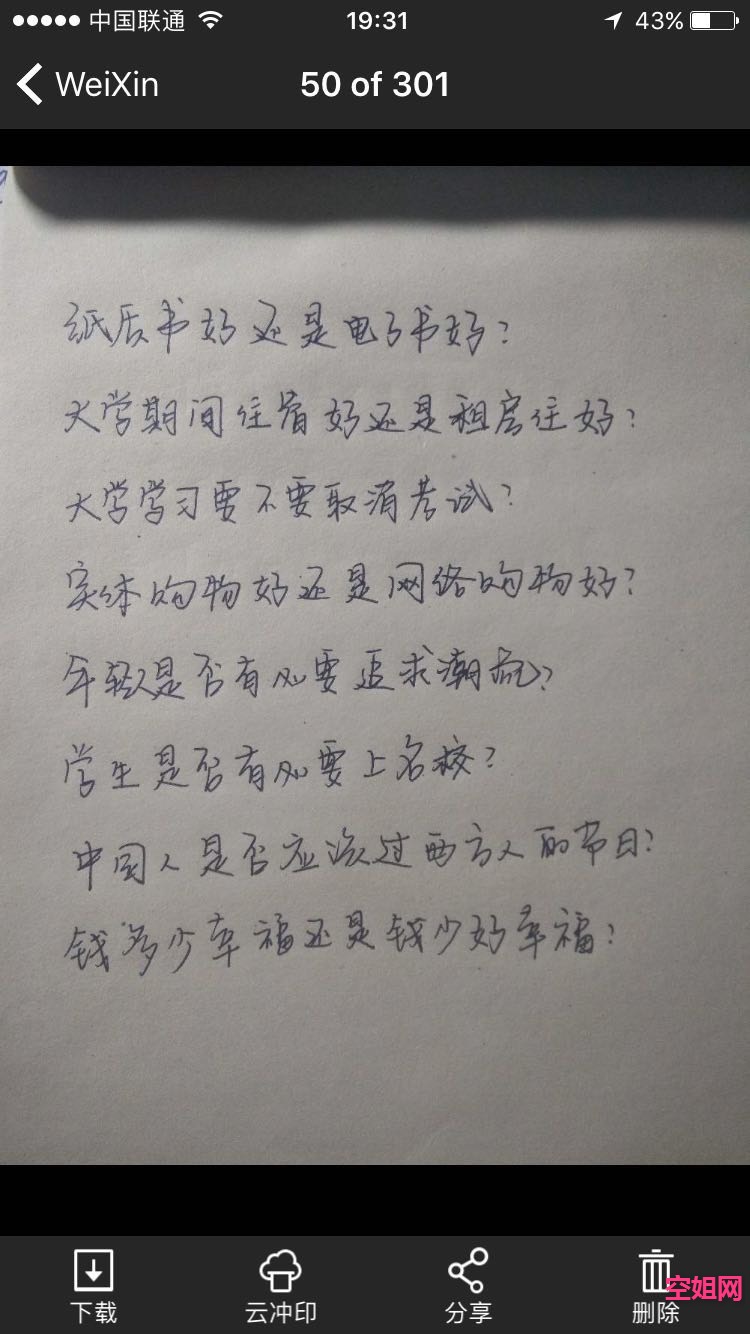 中国联通
19:31
43%
WeiXin
50 of 301
纸质书好还是电子书好?
大学期间住宿好还是租房住好?
大学学习要不要取消考试?
实体购物好还是网络购物好?
年轻人是否有必要追求潮流?
学生是否有必要上名校?
中国人是否应该过西方人的节日?
钱多少幸福还是钱少好幸福?
下载
云冲印
分享
删除
空姐网